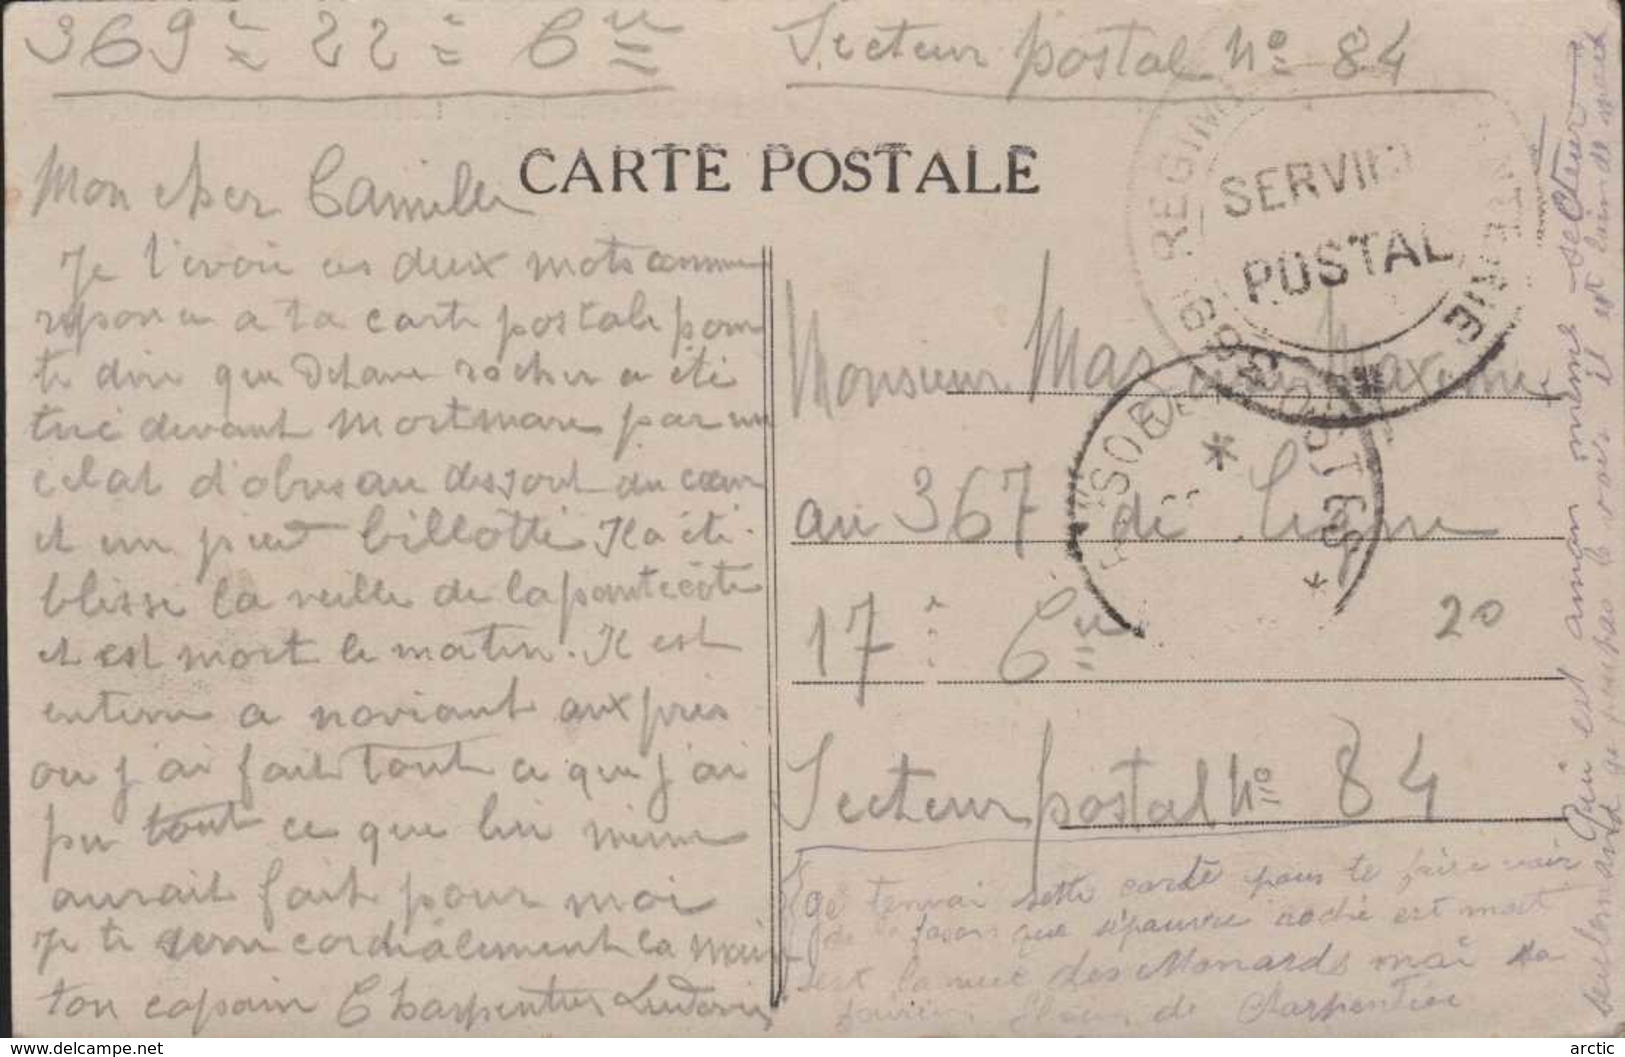 369è 22è Cie Secteur postal No 84
CARTE POSTALE
REGIM
SERVICE
POSTAL
369
TRESOR ET POSTES
Mon cher Camille
Je t'evoie ces deux mots comme
reponce a ta carte postale pour
te dire que Octave rocher a été
tué devant Mortmare par un
eclat d'obus au dessout du cœur
et un pied billotté. Il a été
blessé la veille de la pantecôte
et est mort le matin. Il est
enterré a noviant aux prés
ou j'ai fait tout ce que j'ai
pu tout ce que lui même
aurait fait pour moi
Je te serre cordialement la main
ton copain Charpentier Ludovic
Monsieur Mas Maxime
au 367 de Ligne
17è Cie
20
Secteur postal No 84
ge t'envoi sette carte pour te faire voir
de la fason que s'pauvre roché est mort
Charpentier
qui est a mon même secteur
seulement ge peu pas le voir il est loin de moi
arctic
https://www.delcampe.net